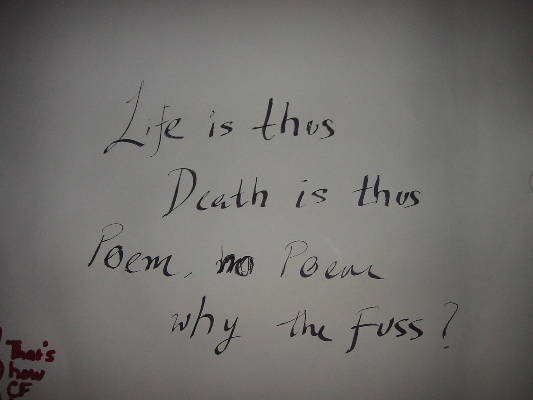 Life is thus
Death is thus
Poem, no Poem
why the Fuss?
That's
how
CF